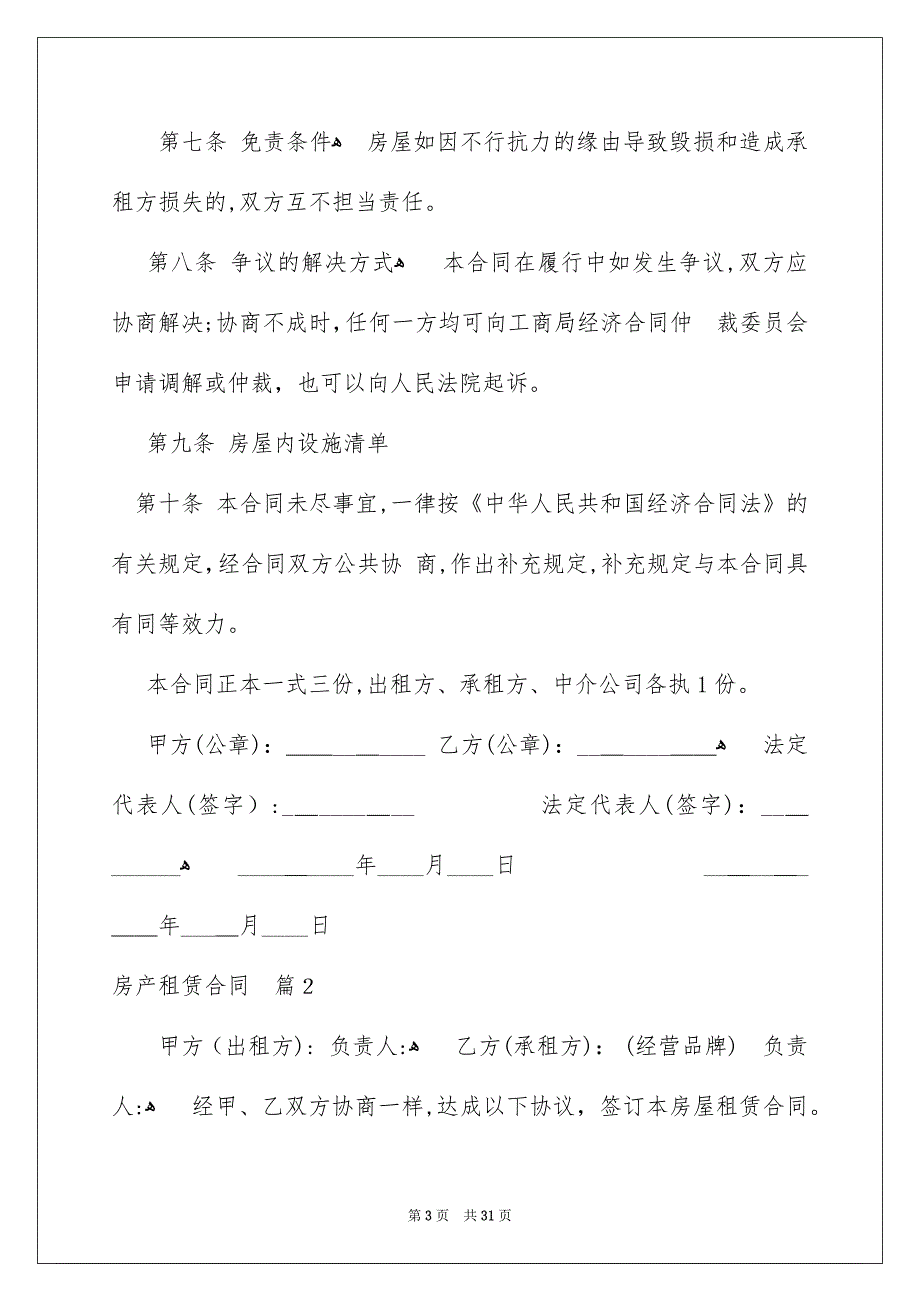 第七条 免责条件ﻫ 房屋如因不行抗力的缘由导致毁损和造成承
租方损失的,双方互不担当责任。
第八条 争议的解决方式ﻫ 本合同在履行中如发生争议,双方应
协商解决;协商不成时,任何一方均可向工商局经济合同仲 裁委员会
申请调解或仲裁，也可以向人民法院起诉。
第九条 房屋内设施清单
第十条 本合同未尽事宜,一律按《中华人民共和国经济合同法》的
有关规定,经合同双方公共协 商,作出补充规定,补充规定与本合同具
有同等效力。
本合同正本一式三份,出租方、承租方、中介公司各执1份。
甲方(公章)：____________ 乙方(公章)：____________ﻫ 法定
代表人(签字）:____________ 法定代表人(签字)：____
______ﻫ __________年____月____日 _________
____年_____月____日
房产租赁合同 篇2
甲方（出租方)：负责人:ﻫ 乙方(承租方)：(经营品牌) 负责
人:ﻫ 经甲、乙双方协商一样,达成以下协议，签订本房屋租赁合同。
第3页 共31页